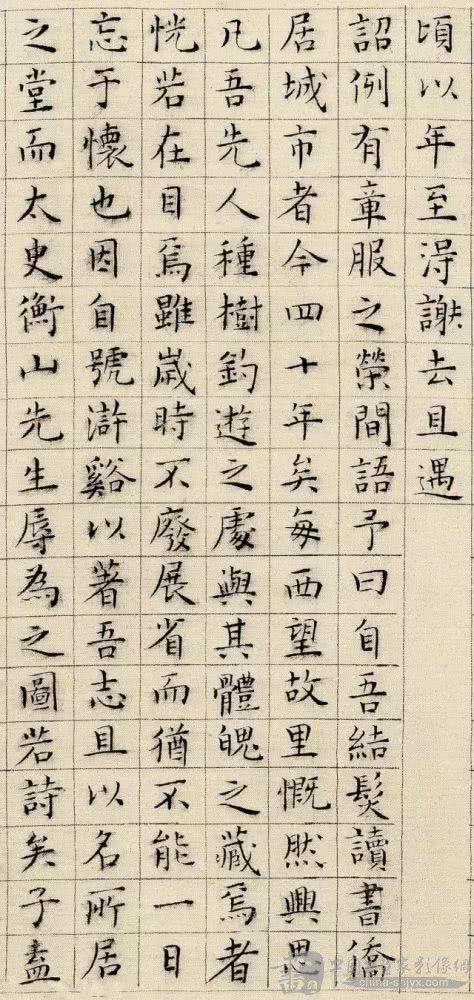 頃以年至得謝去且遇
詔例有章服之榮間語予曰自吾結髮讀書僑
居城市者今四十年矣每西望故里慨然興思
凡吾先人種樹釣遊之處與其體魄之藏焉者
恍若在目焉雖歲時不廢展省而猶不能一日
忘于懷也因自號滸谿以著吾志且以名所居
之堂而太史衡山先生辱為之圖若詩矣子盍
china-shjyx.com